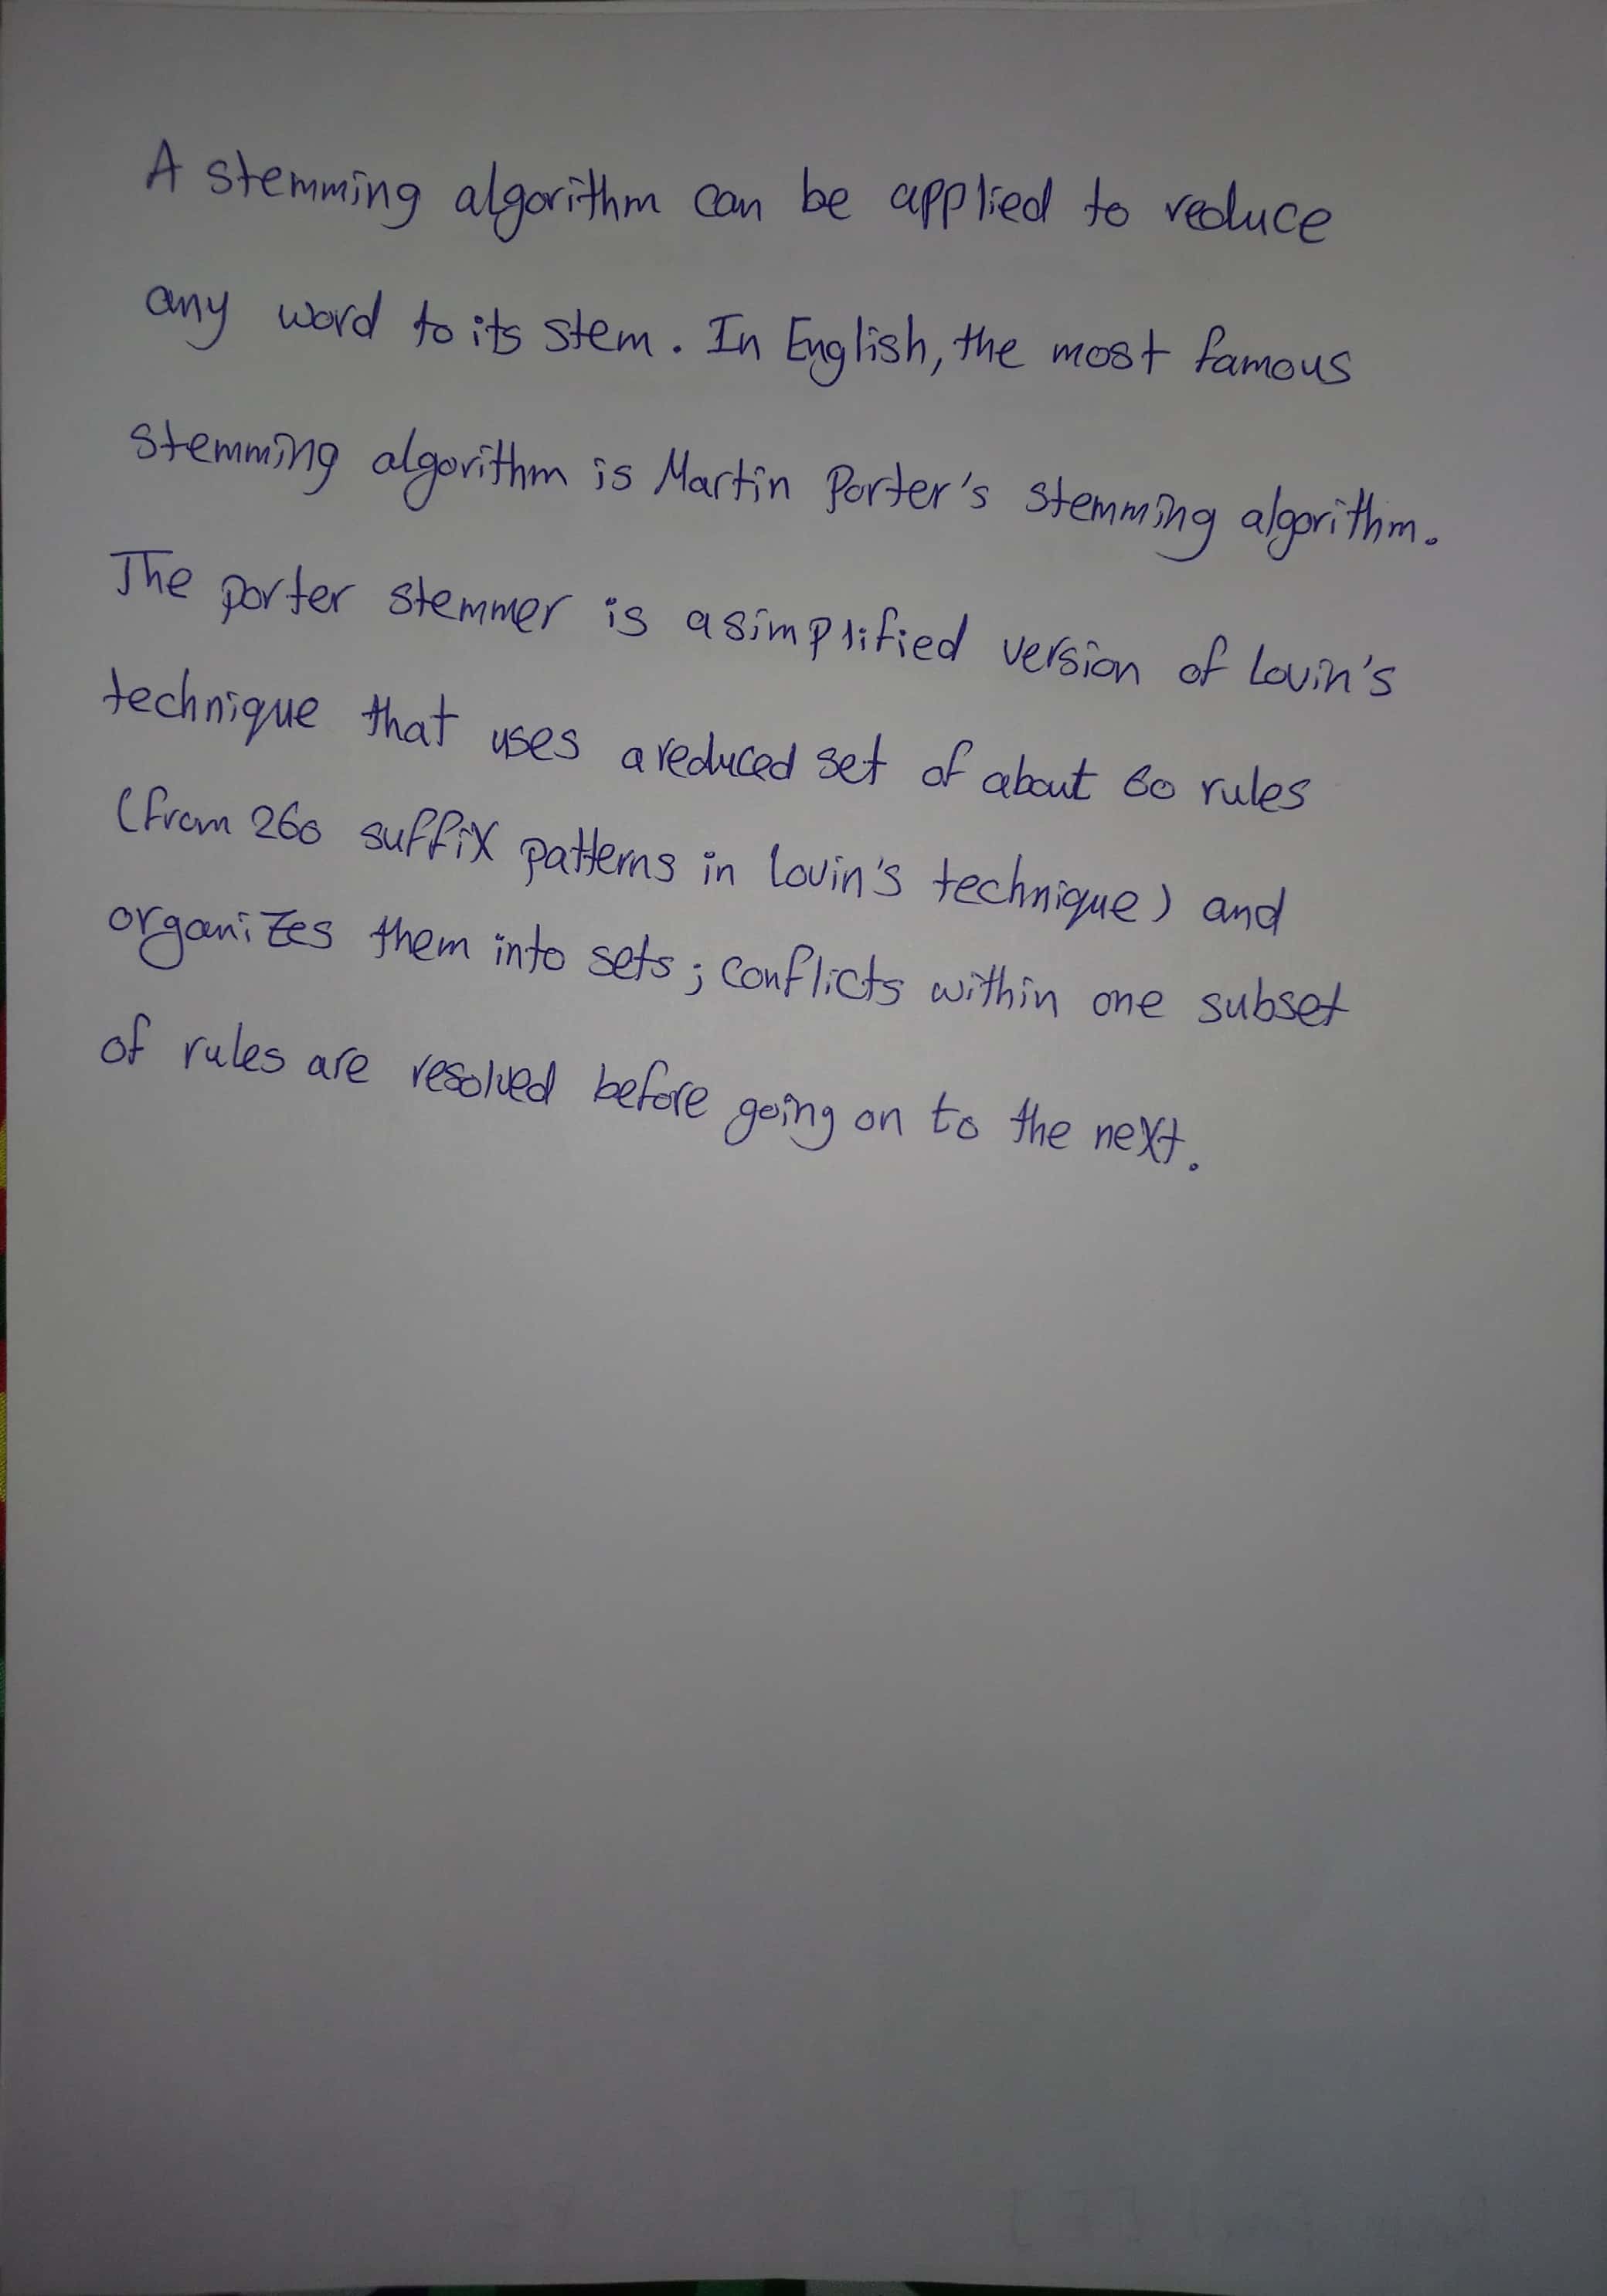 A stemming algorithm can be applied to reduce
any word to its stem. In English, the most famous
stemming algorithm is Martin Porter's stemming algorithm.
The porter stemmer is a simplified version of Lovin's
technique that uses a reduced set of about 60 rules
(from 260 suffix patterns in lovin's technique) and
organizes them into sets; conflicts within one subset
of rules are resolved before going on to the next.